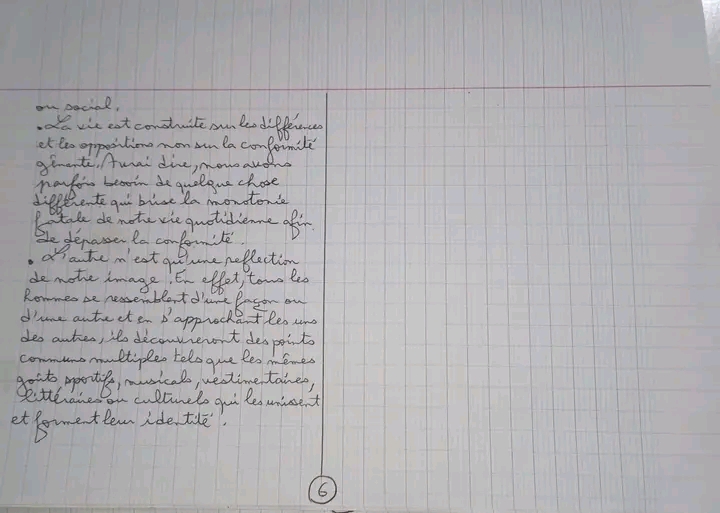 ou social.
. La vie est construite sur les différences
et les oppositions non sur la conformité
gênante. A vrai dire, nous avons
parfois besoin de quelque chose
différente qui brise la monotonie
fatale de notre vie quotidienne afin
de dépasser la conformité.
. L'autre n'est qu'une reflection
de notre image. En effet, tous les
hommes se ressemblent d'une façon ou
d'une autre et en s'approchant les uns
des autres, ils découvreront des points
communs multiples tels que les mêmes
goûts sportifs, musicals, vestimentaires,
littéraires ou culturels qui les unissent
et forment leur identité.
6